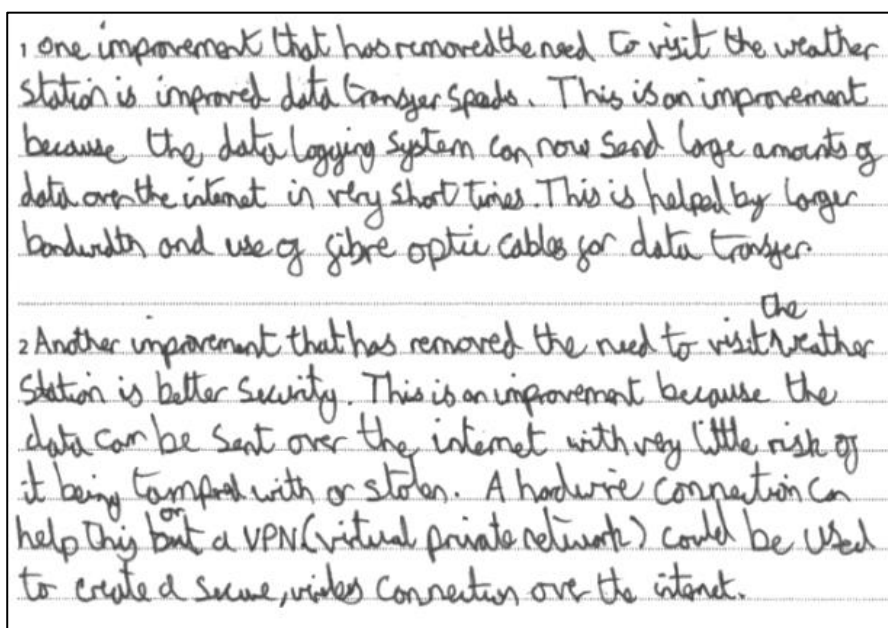 1 One improvement that has removed the need to visit the weather
station is improved data transfer speeds. This is an improvement
because the data logging system can now send large amounts of
data over the internet in very short times. This is helped by larger
bandwidth and use of fibre optic cables for data transfer.
the
2 Another improvement that has removed the need to visit weather
station is better security. This is an improvement because the
data can be sent over the internet with very little risk of
it being tampred with or stolen. A hardwire connection can
or
help this but a VPN (virtual private network) could be used
to create a secure, connection over the internet.